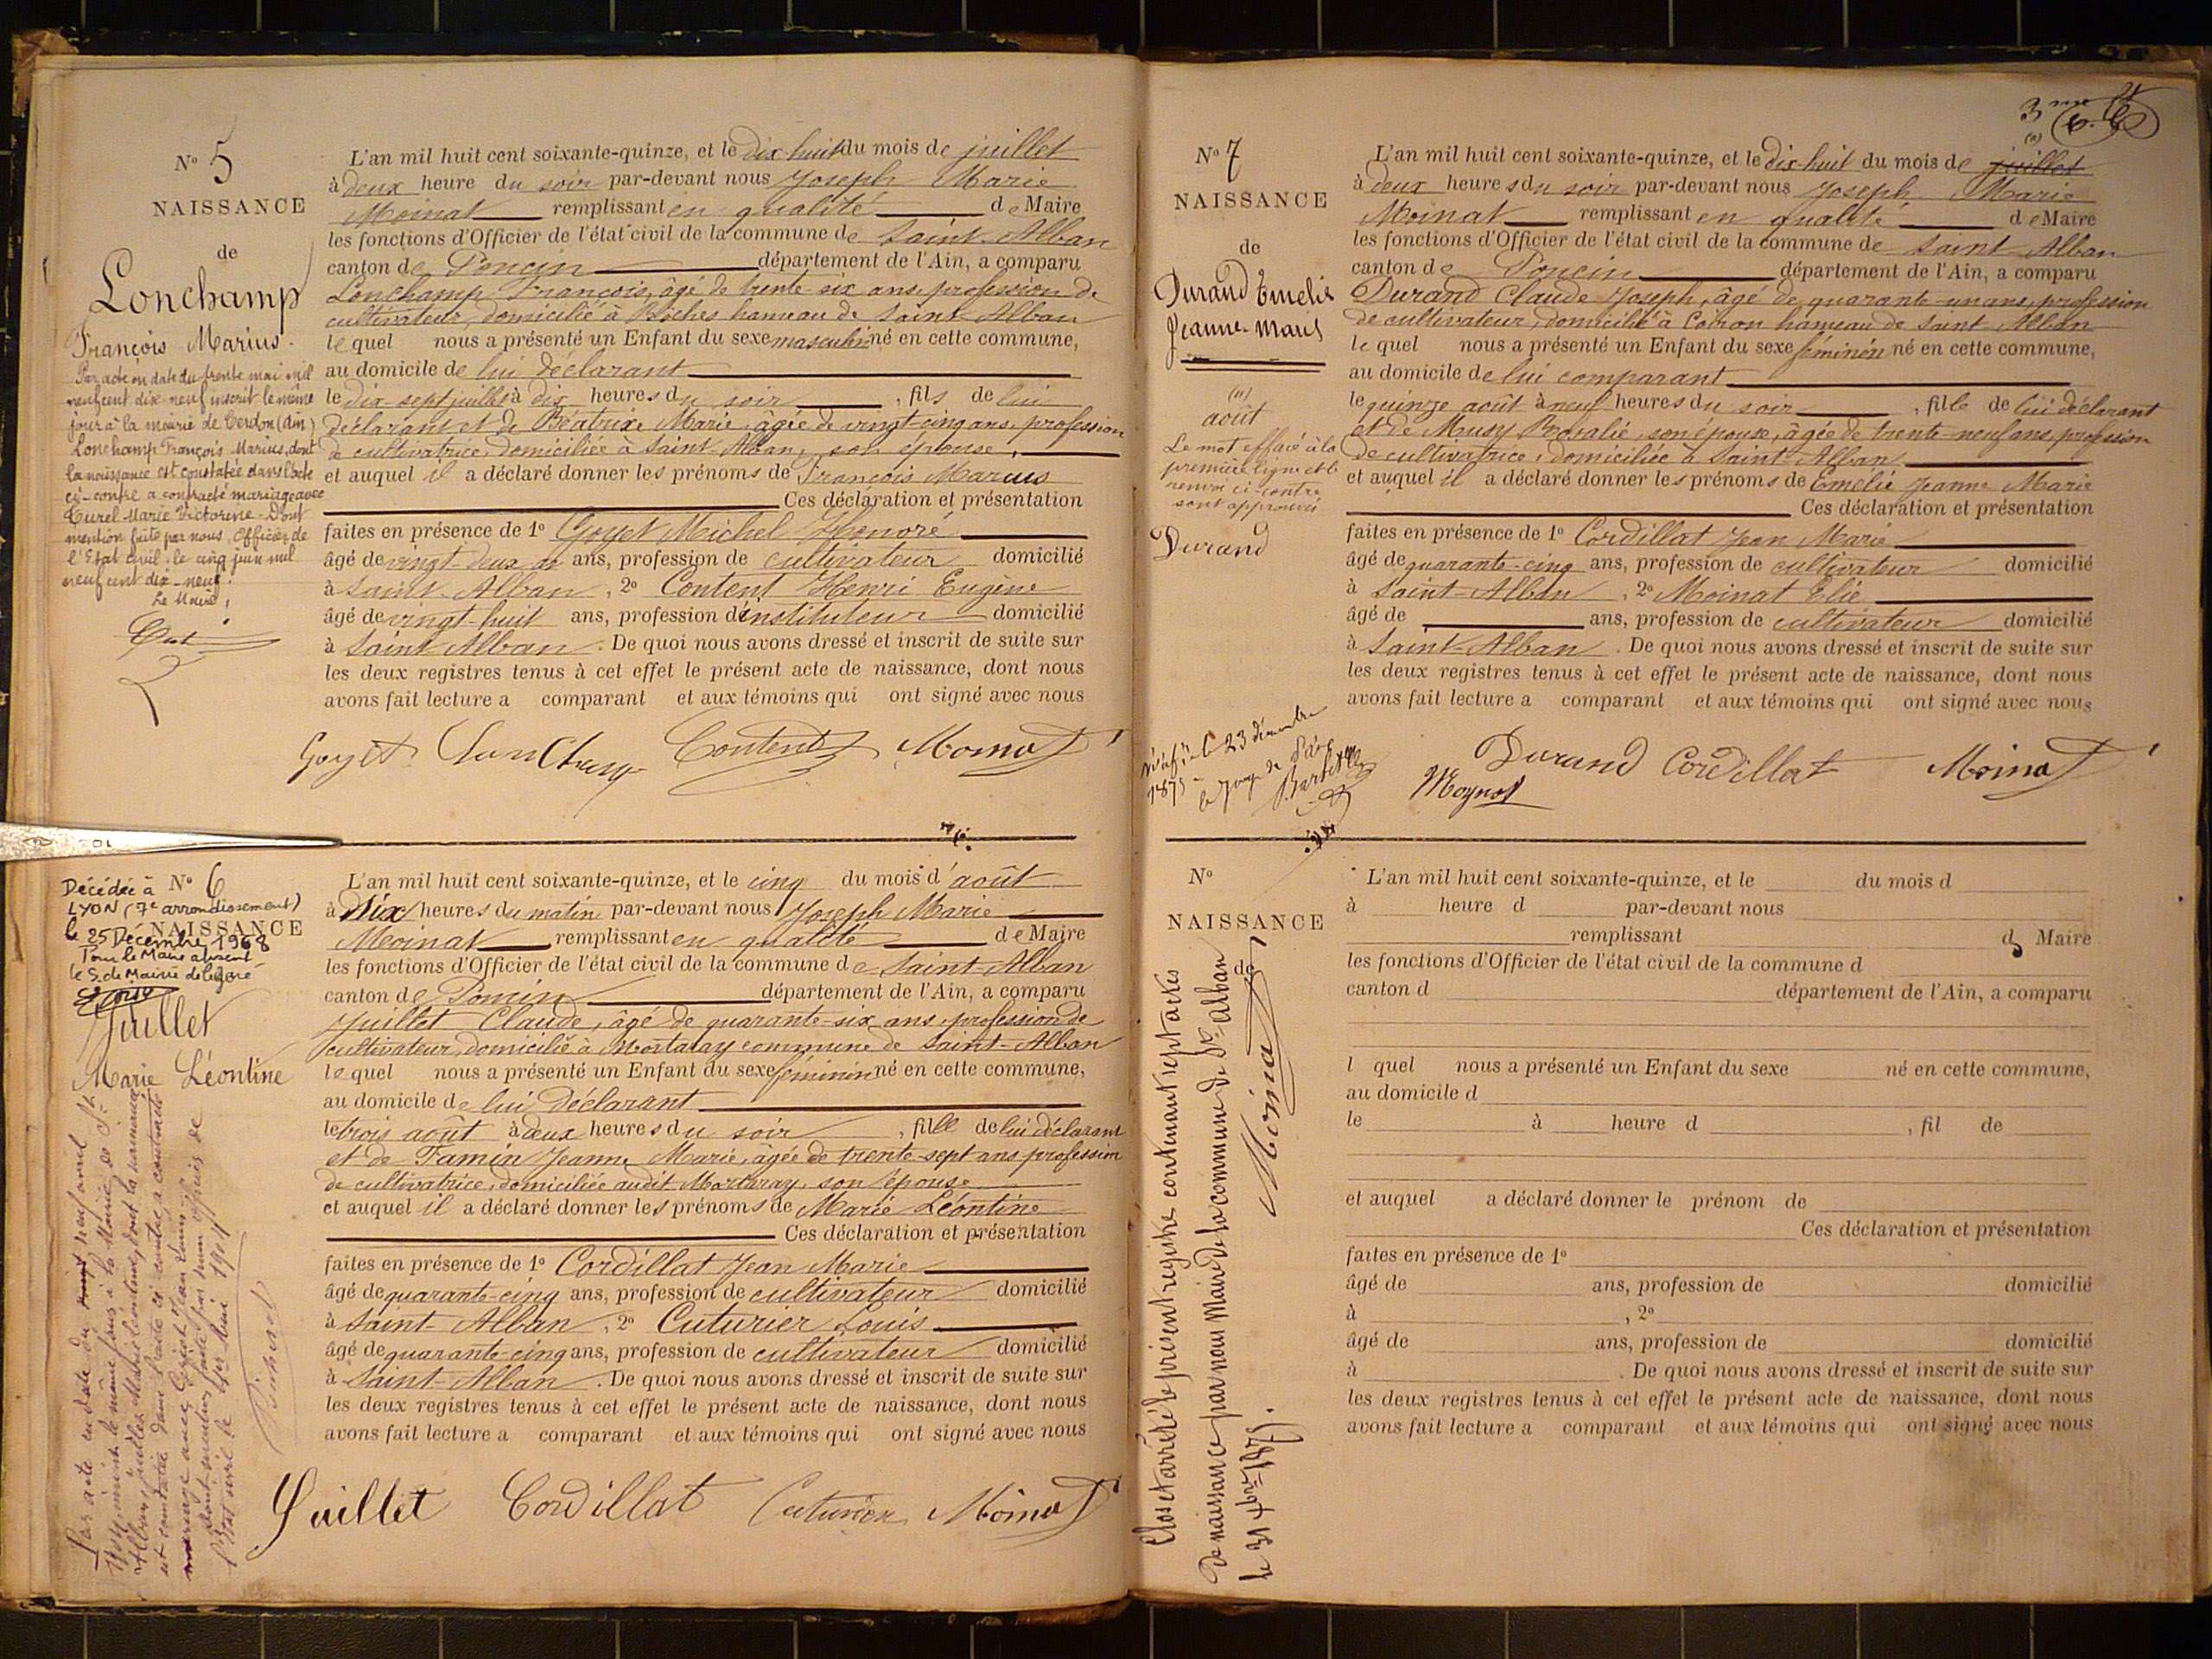 N° 5
NAISSANCE
de
Lonchamp
François Marius.
Par acte en date du trente mai mil
neuf cent dix-neuf inscrit le même
jour à la mairie de Cerdon (Ain)
Lonchamp François Marius, dont
la naissance est constatée dans l'acte
ci-contre a contracté mariage avec
Curel Marie Victorine. Dont
mention faite par nous, Officier de
l'Etat civil, le cinq juin mil
neuf cent dix-neuf.
Le Maire,
L'an mil huit cent soixante-quinze, et le dix-huit du mois de juillet
à deux heure du soir par-devant nous Joseph Marie
Moinat remplissant en qualité de Maire
les fonctions d'Officier de l'état civil de la commune de Saint-Alban
canton de Poncin département de l'Ain, a comparu
Lonchamp François, âgé de trente-six ans, profession de
cultivateur, domicilié à hameau de Saint-Alban
lequel nous a présenté un Enfant du sexe masculin né en cette commune,
au domicile de lui déclarant
le dix sept juillet à dix heures du soir, fils de lui
déclarant et de Béatrix Marie, âgée de vingt-cinq ans, profession
de cultivatrice, domiciliée à Saint-Alban, son épouse,
et auquel il a déclaré donner les prénoms de François Marius
Ces déclaration et présentation
faites en présence de 1° Goyet Michel Honoré
âgé de vingt-deux ans, profession de cultivateur domicilié
à Saint-Alban, 2° Content Henri Eugène
âgé de vingt-huit ans, profession d'instituteur domicilié
à Saint Alban. De quoi nous avons dressé et inscrit de suite sur
les deux registres tenus à cet effet le présent acte de naissance, dont nous
avons fait lecture a comparant et aux témoins qui ont signé avec nous
Goyet Lonchamp Content Moinat
Décédée à
LYON (7e arrondissement)
le 25 Décembre 1968
Pour le Maire absent
le S. de Mairie délégué
N° 6
NAISSANCE
Juillet
Marie Léontine
L'an mil huit cent soixante-quinze, et le cinq du mois d'août
à Dix heures du matin par-devant nous Joseph Marie
Moinat remplissant en qualité de Maire
les fonctions d'Officier de l'état civil de la commune de Saint-Alban
canton de Poncin département de l'Ain, a comparu
Juillet Claude, âgé de quarante-six ans, profession de
cultivateur, domicilié à Mortaray commune de Saint-Alban
lequel nous a présenté un Enfant du sexe féminin né en cette commune,
au domicile de lui Déclarant
le trois août à deux heures du soir, fille de lui déclarant
et de Famin Jeanne Marie, âgée de trente-sept ans profession
de cultivatrice, domiciliée audit Mortaray, son épouse
et auquel il a déclaré donner les prénoms de Marie Léontine
Ces déclaration et présentation
faites en présence de 1° Cordillat Jean Marie
âgé de quarante-cinq ans, profession de cultivateur domicilié
à Saint-Alban, 2° Cuturier Louis
âgé de quarante-cinq ans, profession de cultivateur domicilié
à Saint-Alban. De quoi nous avons dressé et inscrit de suite sur
les deux registres tenus à cet effet le présent acte de naissance, dont nous
avons fait lecture a comparant et aux témoins qui ont signé avec nous
Juillet Cordillat Cuturier Moinat
3me
N° 7
NAISSANCE
de
Durand Emelie
Jeanne-Marie
(a)
août
Le mot effacé à la
première ligne et le
renvoi ci-contre
sont approuvés
Durand
L'an mil huit cent soixante-quinze, et le dix-huit du mois de juillet
à deux heures du soir par-devant nous Joseph Marie
Moinat remplissant en qualité de Maire
les fonctions d'Officier de l'état civil de la commune de Saint-Alban
canton de Poncin département de l'Ain, a comparu
Durand Claude Joseph, âgé de quarante-un ans, profession
de cultivateur, domicilié à Coiron hameau de Saint-Alban
lequel nous a présenté un Enfant du sexe féminin né en cette commune,
au domicile de lui comparant
le quinze août à neuf heures du soir, fille de lui déclarant
et de Musy Rosalie, son épouse, âgée de trente-neuf ans, profession
de cultivatrice, domiciliée à Saint-Alban
et auquel il a déclaré donner les prénoms de Emelie Jeanne Marie
Ces déclaration et présentation
faites en présence de 1° Cordillat Jean Marie
âgé de quarante-cinq ans, profession de cultivateur domicilié
à Saint-Alban, 2° Moinat Elie
âgé de ans, profession de cultivateur domicilié
à Saint-Alban. De quoi nous avons dressé et inscrit de suite sur
les deux registres tenus à cet effet le présent acte de naissance, dont nous
avons fait lecture a comparant et aux témoins qui ont signé avec nous
Durand Cordillat Moinat
Moynat
23 décembre
1875
le Juge de Paix
N°
NAISSANCE
de
Clos et arrêté le présent registre contenant sept actes
De naissance par nous Maire de la commune de St-Alban
le 31 Xbre 1875.
Moinat
L'an mil huit cent soixante-quinze, et le du mois d
à heure d par-devant nous
remplissant d Maire
les fonctions d'Officier de l'état civil de la commune d
canton d département de l'Ain, a comparu
l quel nous a présenté un Enfant du sexe né en cette commune,
au domicile d
le à heure d , fil de
et auquel a déclaré donner le prénom de
Ces déclaration et présentation
faites en présence de 1°
âgé de ans, profession de domicilié
à , 2°
âgé de ans, profession de domicilié
à . De quoi nous avons dressé et inscrit de suite sur
les deux registres tenus à cet effet le présent acte de naissance, dont nous
avons fait lecture a comparant et aux témoins qui ont signé avec nous